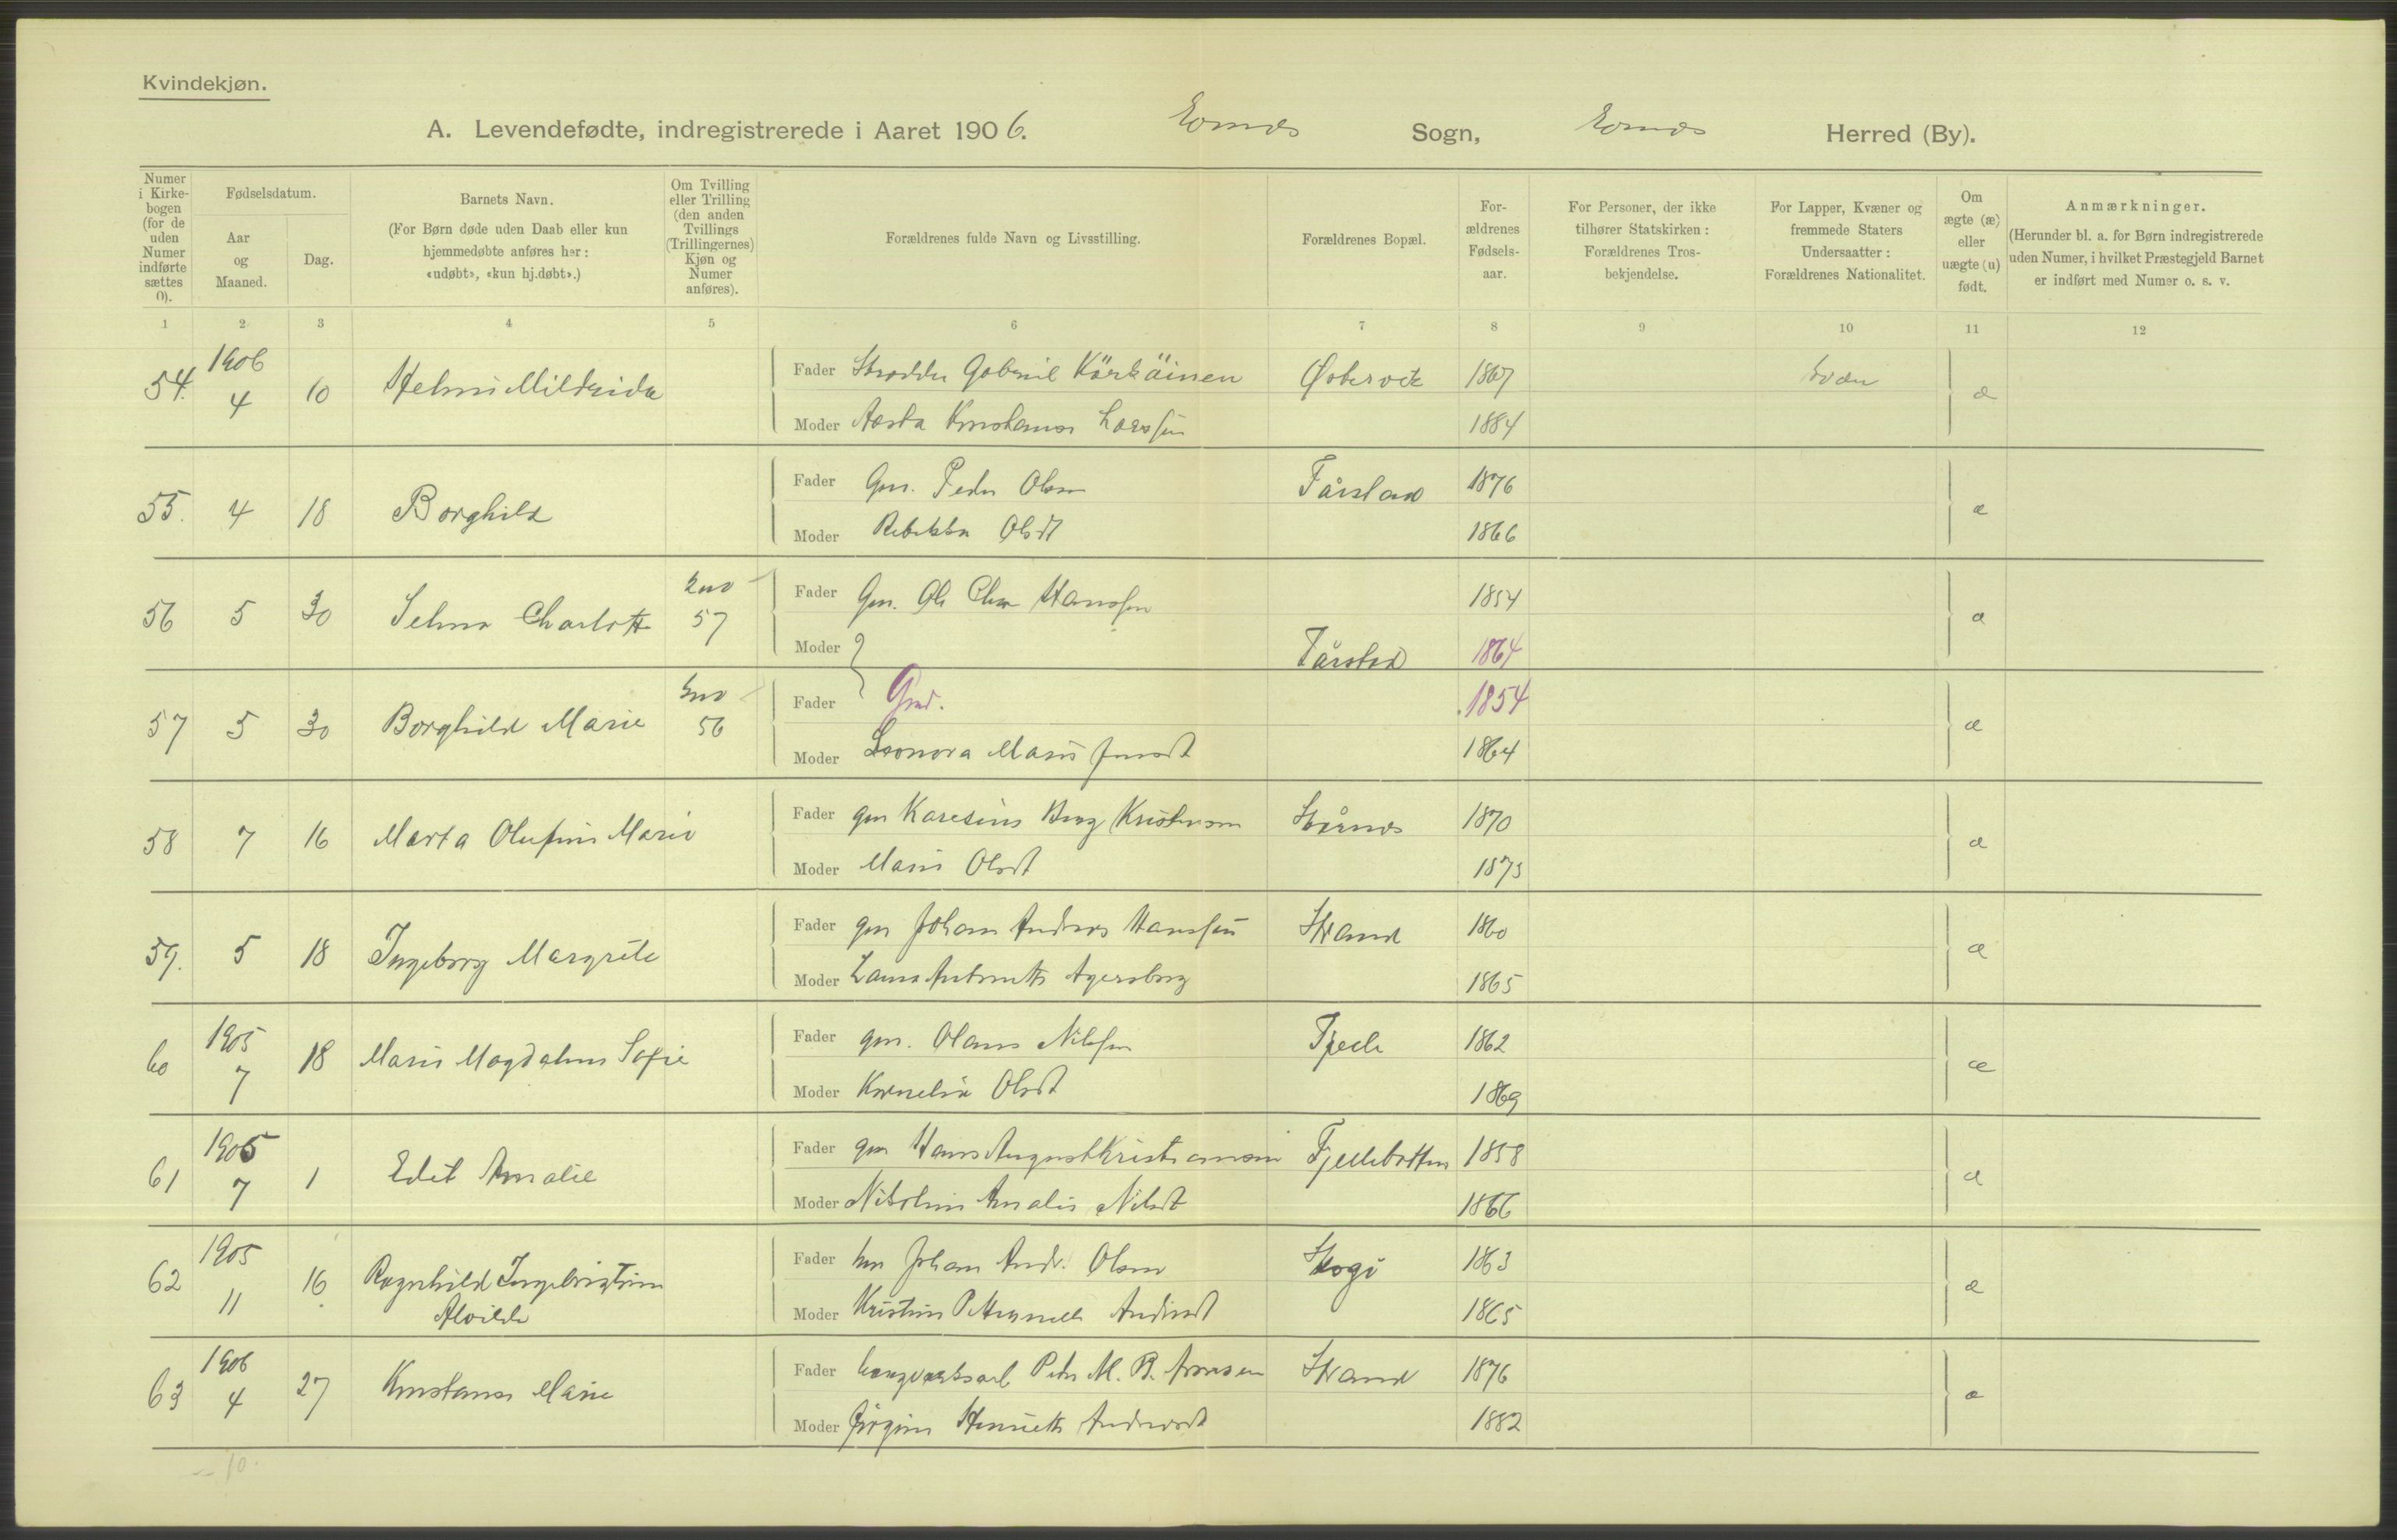 Kvindekjøn.
A. Levendefødte, indregistrerede i Aaret 1906. Evenes Sogn, Evenes Herred (By).
Numer i Kirkebogen (for de uden Numer indførte sættes 0).
Fødselsdatum.
Aar og Maaned.
Dag.
Barnets Navn.
(For Børn døde uden Daab eller kun hjemmedøbte anføres her: «udøbt», «kun hj.døbt».)
Om Tvilling eller Trilling (den anden Tvillings (Trillingernes) Kjøn og Numer anføres).
Forældrenes fulde Navn og Livsstilling.
Forældrenes Bopæl.
Forældrenes Fødselsaar.
For Personer, der ikke tilhører Statskirken: Forældrenes Trosbekjendelse.
For Lapper, Kvæner og fremmede Staters Undersaatter: Forældrenes Nationalitet.
Om ægte (æ) eller uægte (u) født.
Anmærkninger.
(Herunder bl. a. for Børn indregistrerede uden Numer, i hvilket Præstegjeld Barnet er indført med Numer o. s. v.
1 2 3 4 5 6 7 8 9 10 11 12
54. 1906 4 10 Helmi Mildrida Fader Skrædder Gabriel Kärkäinen 1867 æ
Moder Aasta Konstanse Larssen 1884
55. 4 18 Borghild Fader Gm. Peder Olsen Tårstad 1876 æ
Moder Rebekka Olsdt 1866
56 5 30 Selma Charlotte 57 Fader Gm. Ole Chr Hanssen 1854 æ
Moder Tårstad 1864
57 5 30 Borghild Marie 56 Fader Gmd. 1854 æ
Moder Leonora Marie Jensdt 1864
58 7 16 Marta Olufine Marie Fader gm Karesius Berg Kristensen 1870 æ
Moder Marie Olsdt 1873
59. 5 18 Ingeborg Margrete Fader gm Johan Andreas Hanssen Strand 1860 æ
Moder Laura Antonette Agersborg 1865
60 1905 7 18 Marie Magdalene Sofie Fader gm. Olaus Nilssen 1862 æ
Moder Kornelia Olsdt 1869
61 1905 7 1 Edit Amalie Fader gm Hans August Kristiansen Fjeldbotten 1858 æ
Moder Nikoline Amalie Nilsdt 1866
62 1905 11 16 Ragnhild Ingebrigtine Alvilde Fader Johan Andr. Olsen 1863 æ
Moder Kristine Petternelle Andersdt 1865
63 1906 4 27 Konstanse Marie Fader Peder M. B. Arnesen Strand 1876 æ
Moder Jörgine Henriette Andreasdt 1882
10.